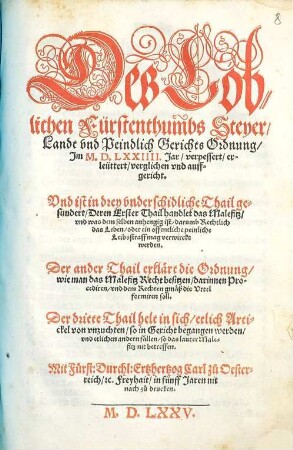 8
Des Lob,
lichen Fürstenthumbs Steyer/
Landt und Peindlich Gerichts Ordnung/
Im M. D. LXXIIII. Jar/ verpessert/ er-
leüttert/ verglichen und auff-
gericht.
Und ist in drey underschidliche Thail ge-
sündert/ Deren Erster Thail handlet das Malefitz/
und was dem selben anhengig ist/ darumb Rechtlich
das Leben/ oder ein offentliche peinliche
Leibsstraff mag verwirckt
werden.
Der ander Thail erklärt die Ordnung/
wie man das Malefitz Recht besitzen/ darinnen Pro-
cediren/ und dem Rechten gmäß die Urtel
formiren soll.
Der dritte Thail helt in sich/ etlich Arti-
ckel von unzuchten/ so in Gericht begangen werden/
und etlichen andern fällen/ so das lauter Male-
fitz nit betreffen.
Mit Fürst: Durchl: Ertzhertzog Carl zů Oester-
reich/ ꝛc. Freyhait/ in fünff Jaren nit
nach zů drucken.
M. D. LXXV.